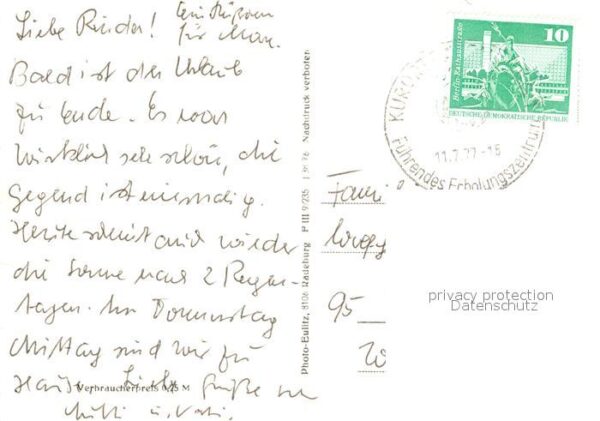 Liebe Kinder! Ein Küßchen
für Man.
Bald ist der Urlaub
zu Ende. Es war
wirklich sehr schön, die
Gegend ist einmalig.
Heute scheint auch wieder
die Sonne nach 2 Regen-
tagen. Am Donnerstag
Mittag sind wir zu
Hause. Liebe Grüße von
Mutti u. Vati.
Verbraucherpreis 0,25 M
Photo-Eulitz, 8106 Radeburg P III 9/235 Nachdruck verboten
10
Berlin-Rathausstraße
DEUTSCHE DEMOKRATISCHE REPUBLIK
KURORT
11.7.77-15
Führendes Erholungszentrum
Fami
95
privacy protection
Datenschutz